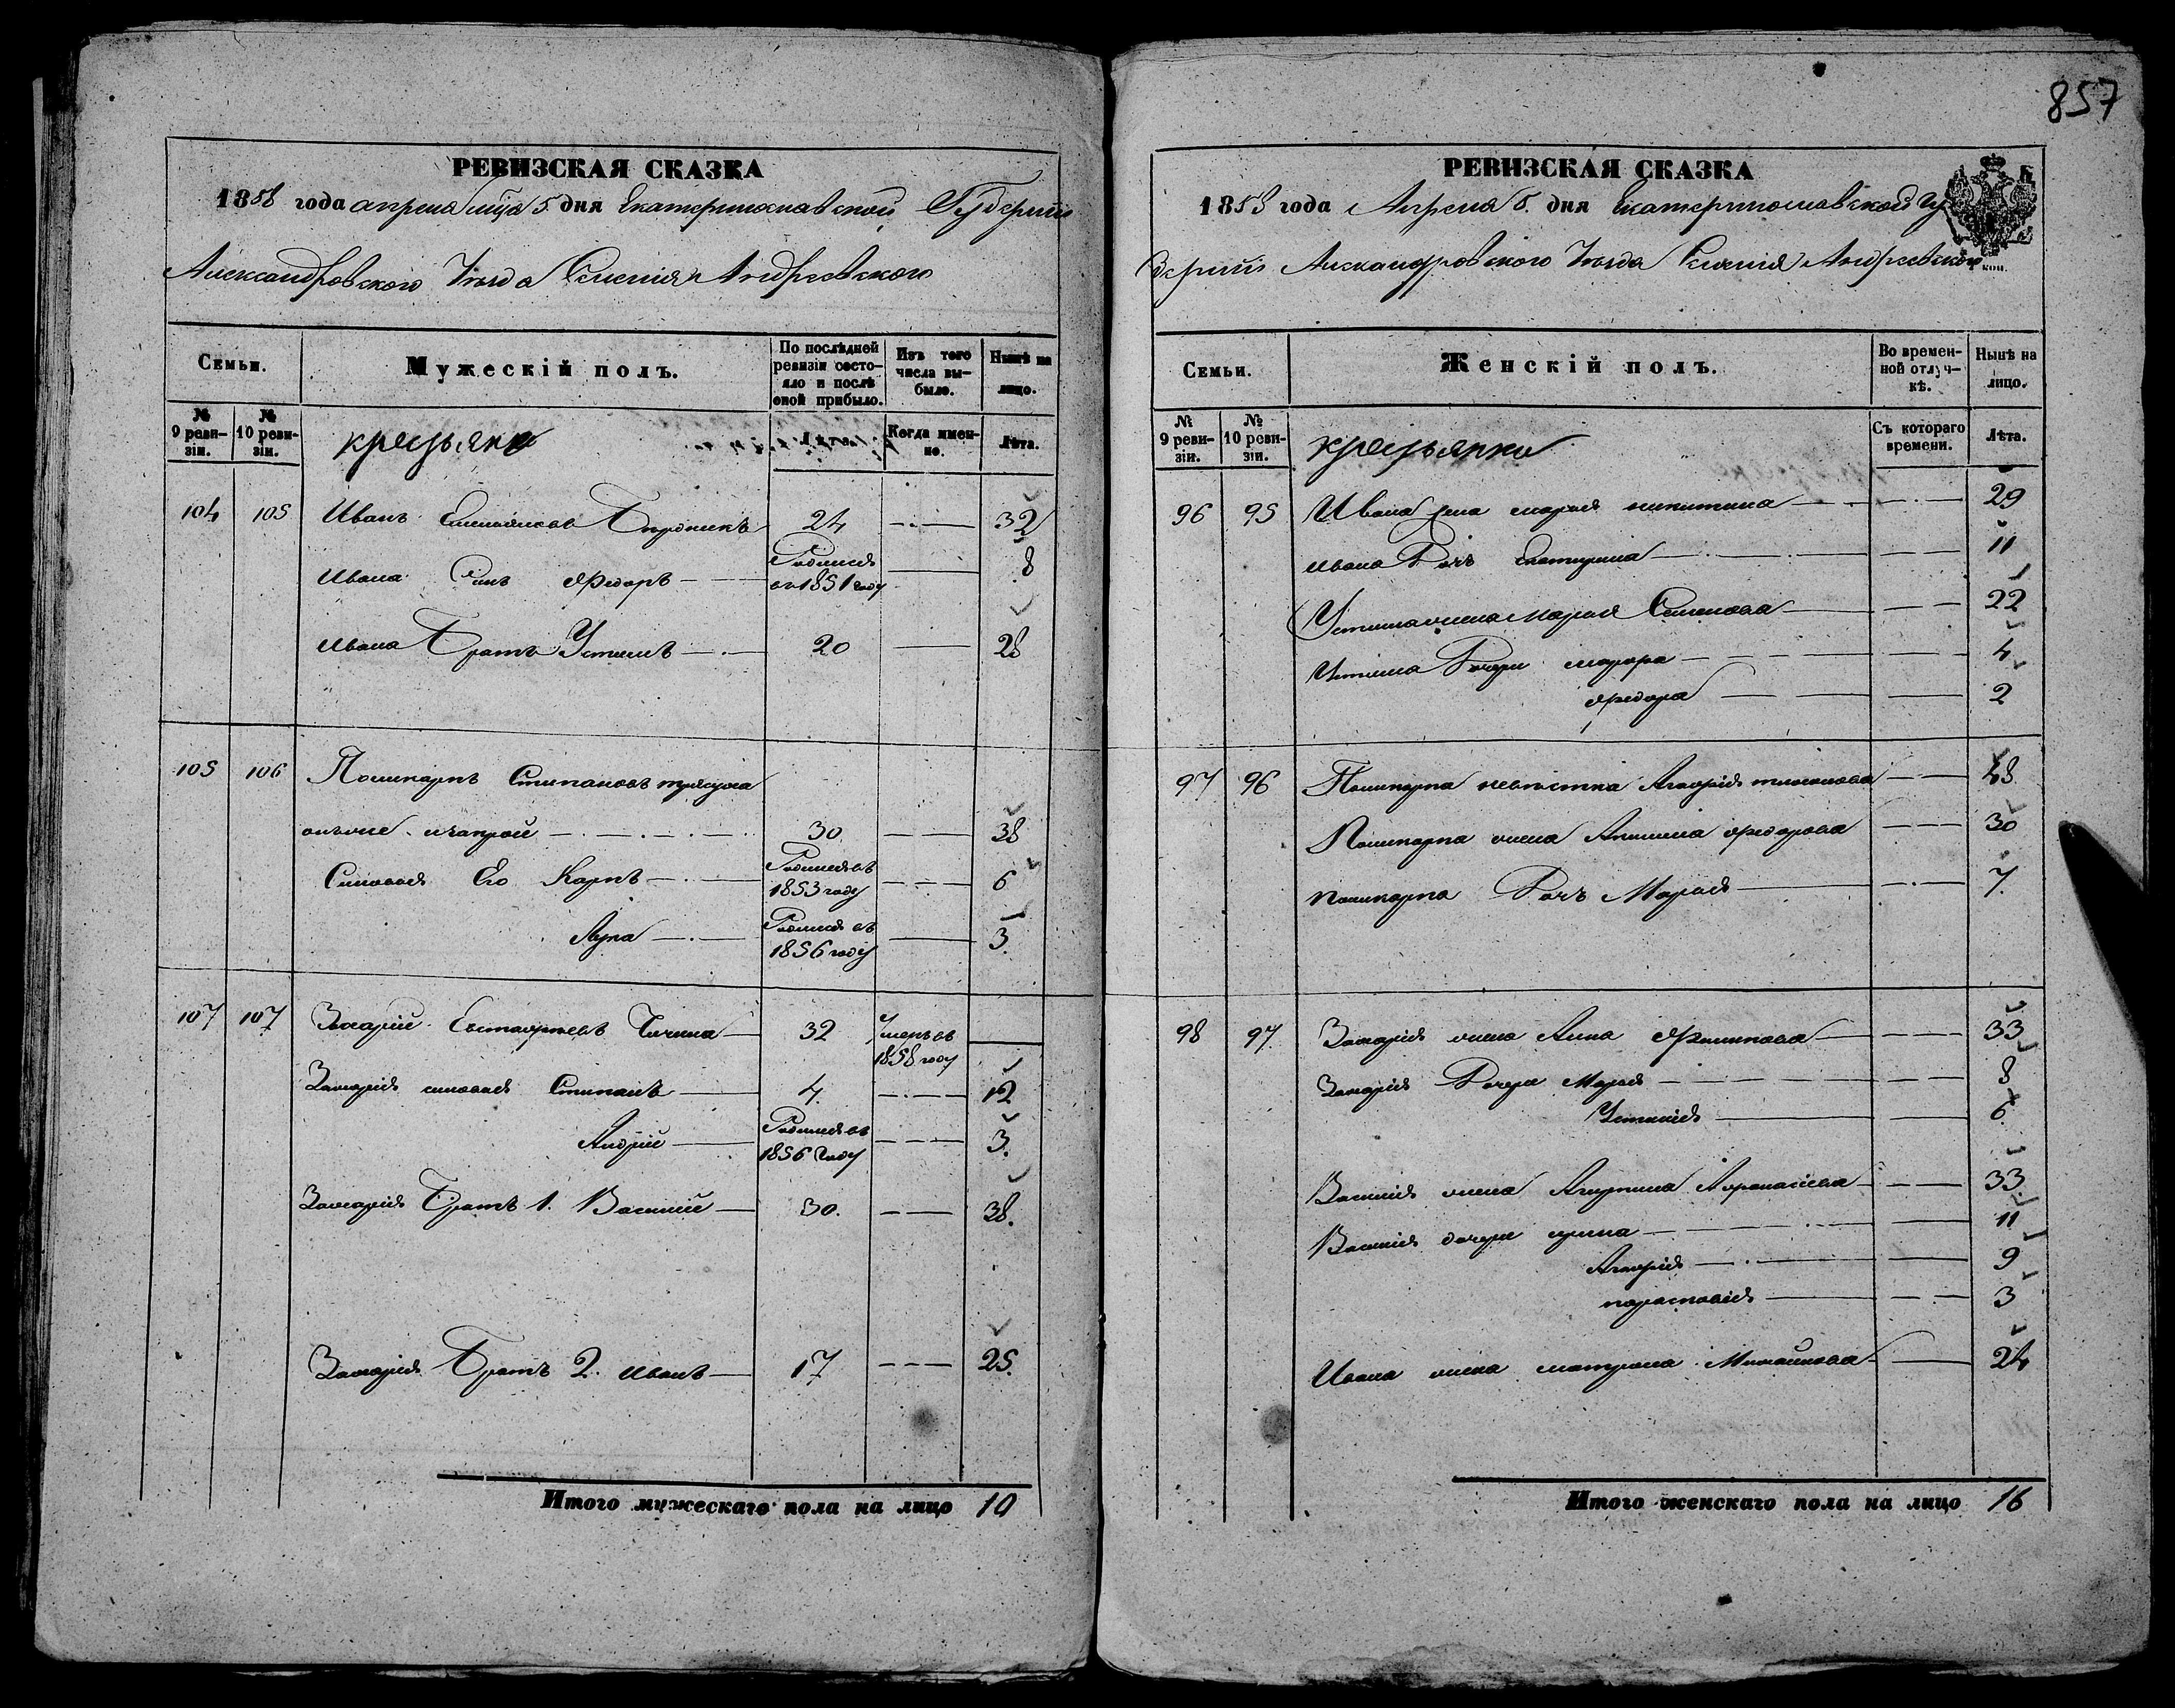 857
РЕВИЗСКАЯ СКАЗКА
1858 года апреля мца 5 дня Екатеринославской Губернии
Александровского Уезда Селения Андреевского
Семьи.
Мужескій полъ.
По послѣдней ревизіи состояло и послѣ оной прибыло.
Изъ того числа выбыло.
Нынѣ на лицо.
№ 9 ревизіи.
№ 10 ревизіи.
крезьяне
Лѣта.
Когда именно.
Лѣта.
104 105 Иванъ 24 32
Ивана Синъ Федоръ Родился въ 1851 году 8
Ивана Братъ Устимъ 20 28
105 106 Поликарпъ Степановъ
30 38
Сыновья Его Карпъ Родился въ 1853 году 6
Лука Родился въ 1856 году 3
107 107 Захарий Евстафиевъ 32 Умеръ въ 1858 году
Захария сыновья Степанъ 4 12
Андрей Родился въ 1856 году 3.
Захария Братъ 1. Василий 30. 38.
Захария Братъ 2. Иванъ 17 25.
Итого мужескаго пола на лицо 10
РЕВИЗСКАЯ СКАЗКА
1858 года Апреля 5. дня Екатеринославской Гу
бернии Александровского Уезда Селения Андреевского
коп.
Семьи.
Женскій полъ.
Во временной отлучкѣ.
Нынѣ на лицо.
№ 9 ревизіи.
№ 10 ревизіи.
крезьянки
Съ котораго времени.
Лѣта.
96 95 Ивана жена мария никитина 29
Ивана Дочь Екатерина 11
Устима жена Мария Семенова 22
Устима Дочери 4
федора 2
97 96 Поликарпа невестка Агафия 48
Поликарпа жена Акилина федорова 30
Поликарпа Дочь Мария 7.
98 97. Захария жена Анна Филипова 33
Захария Дочери Мария 8
Устиния 6
Василия жена Агрипина Афанасиева 33
Василия дочери ирина 11
Агафия 9
парасковия 3
Ивана жена матрона Михайлова 24
Итого женскаго пола на лицо 16